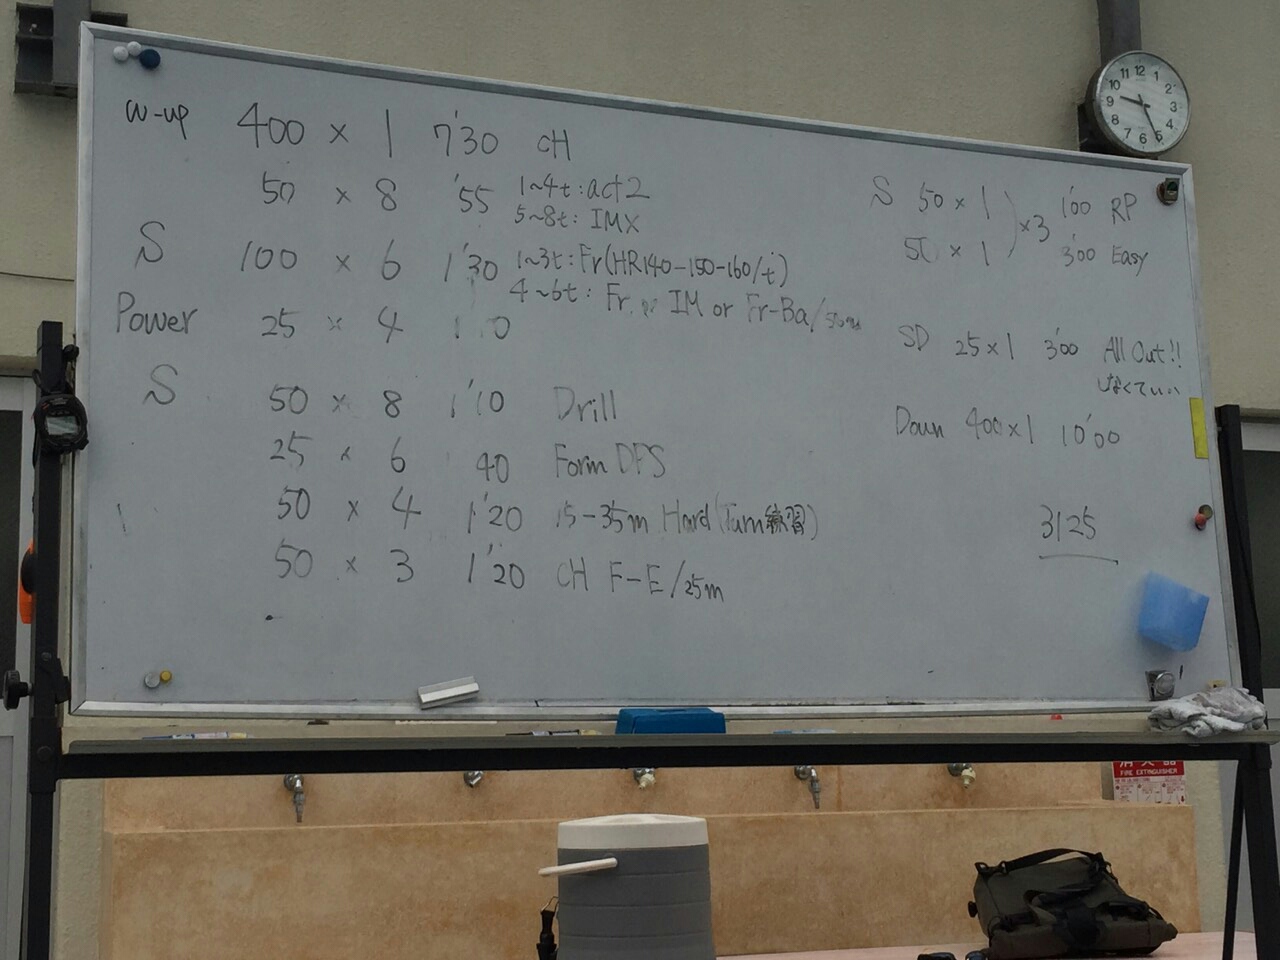 W-up 400 × 1 7'30 CH
50 × 8 '55 1~4t: act2
5~8t: IMX
S 100 × 6 1'30 1~3t: Fr(HR140-150-160/t)
4~6t: Fr IM or Fr-Ba/50m
Power 25 × 4
S 50 × 8 1'10 Drill
25 × 6 40 Form DPS
50 × 4 1'20 15-35m Hard (Turn練習)
50 × 3 1'20 CH F-E/25m
S 50 × 1 ) ×3 1'00 RP
50 × 1 3'00 Easy
SD 25×1 3'00 All Out!!
しなくていい
Down 400×1 10'00
3125
消火器
FIRE EXTINGUISHER